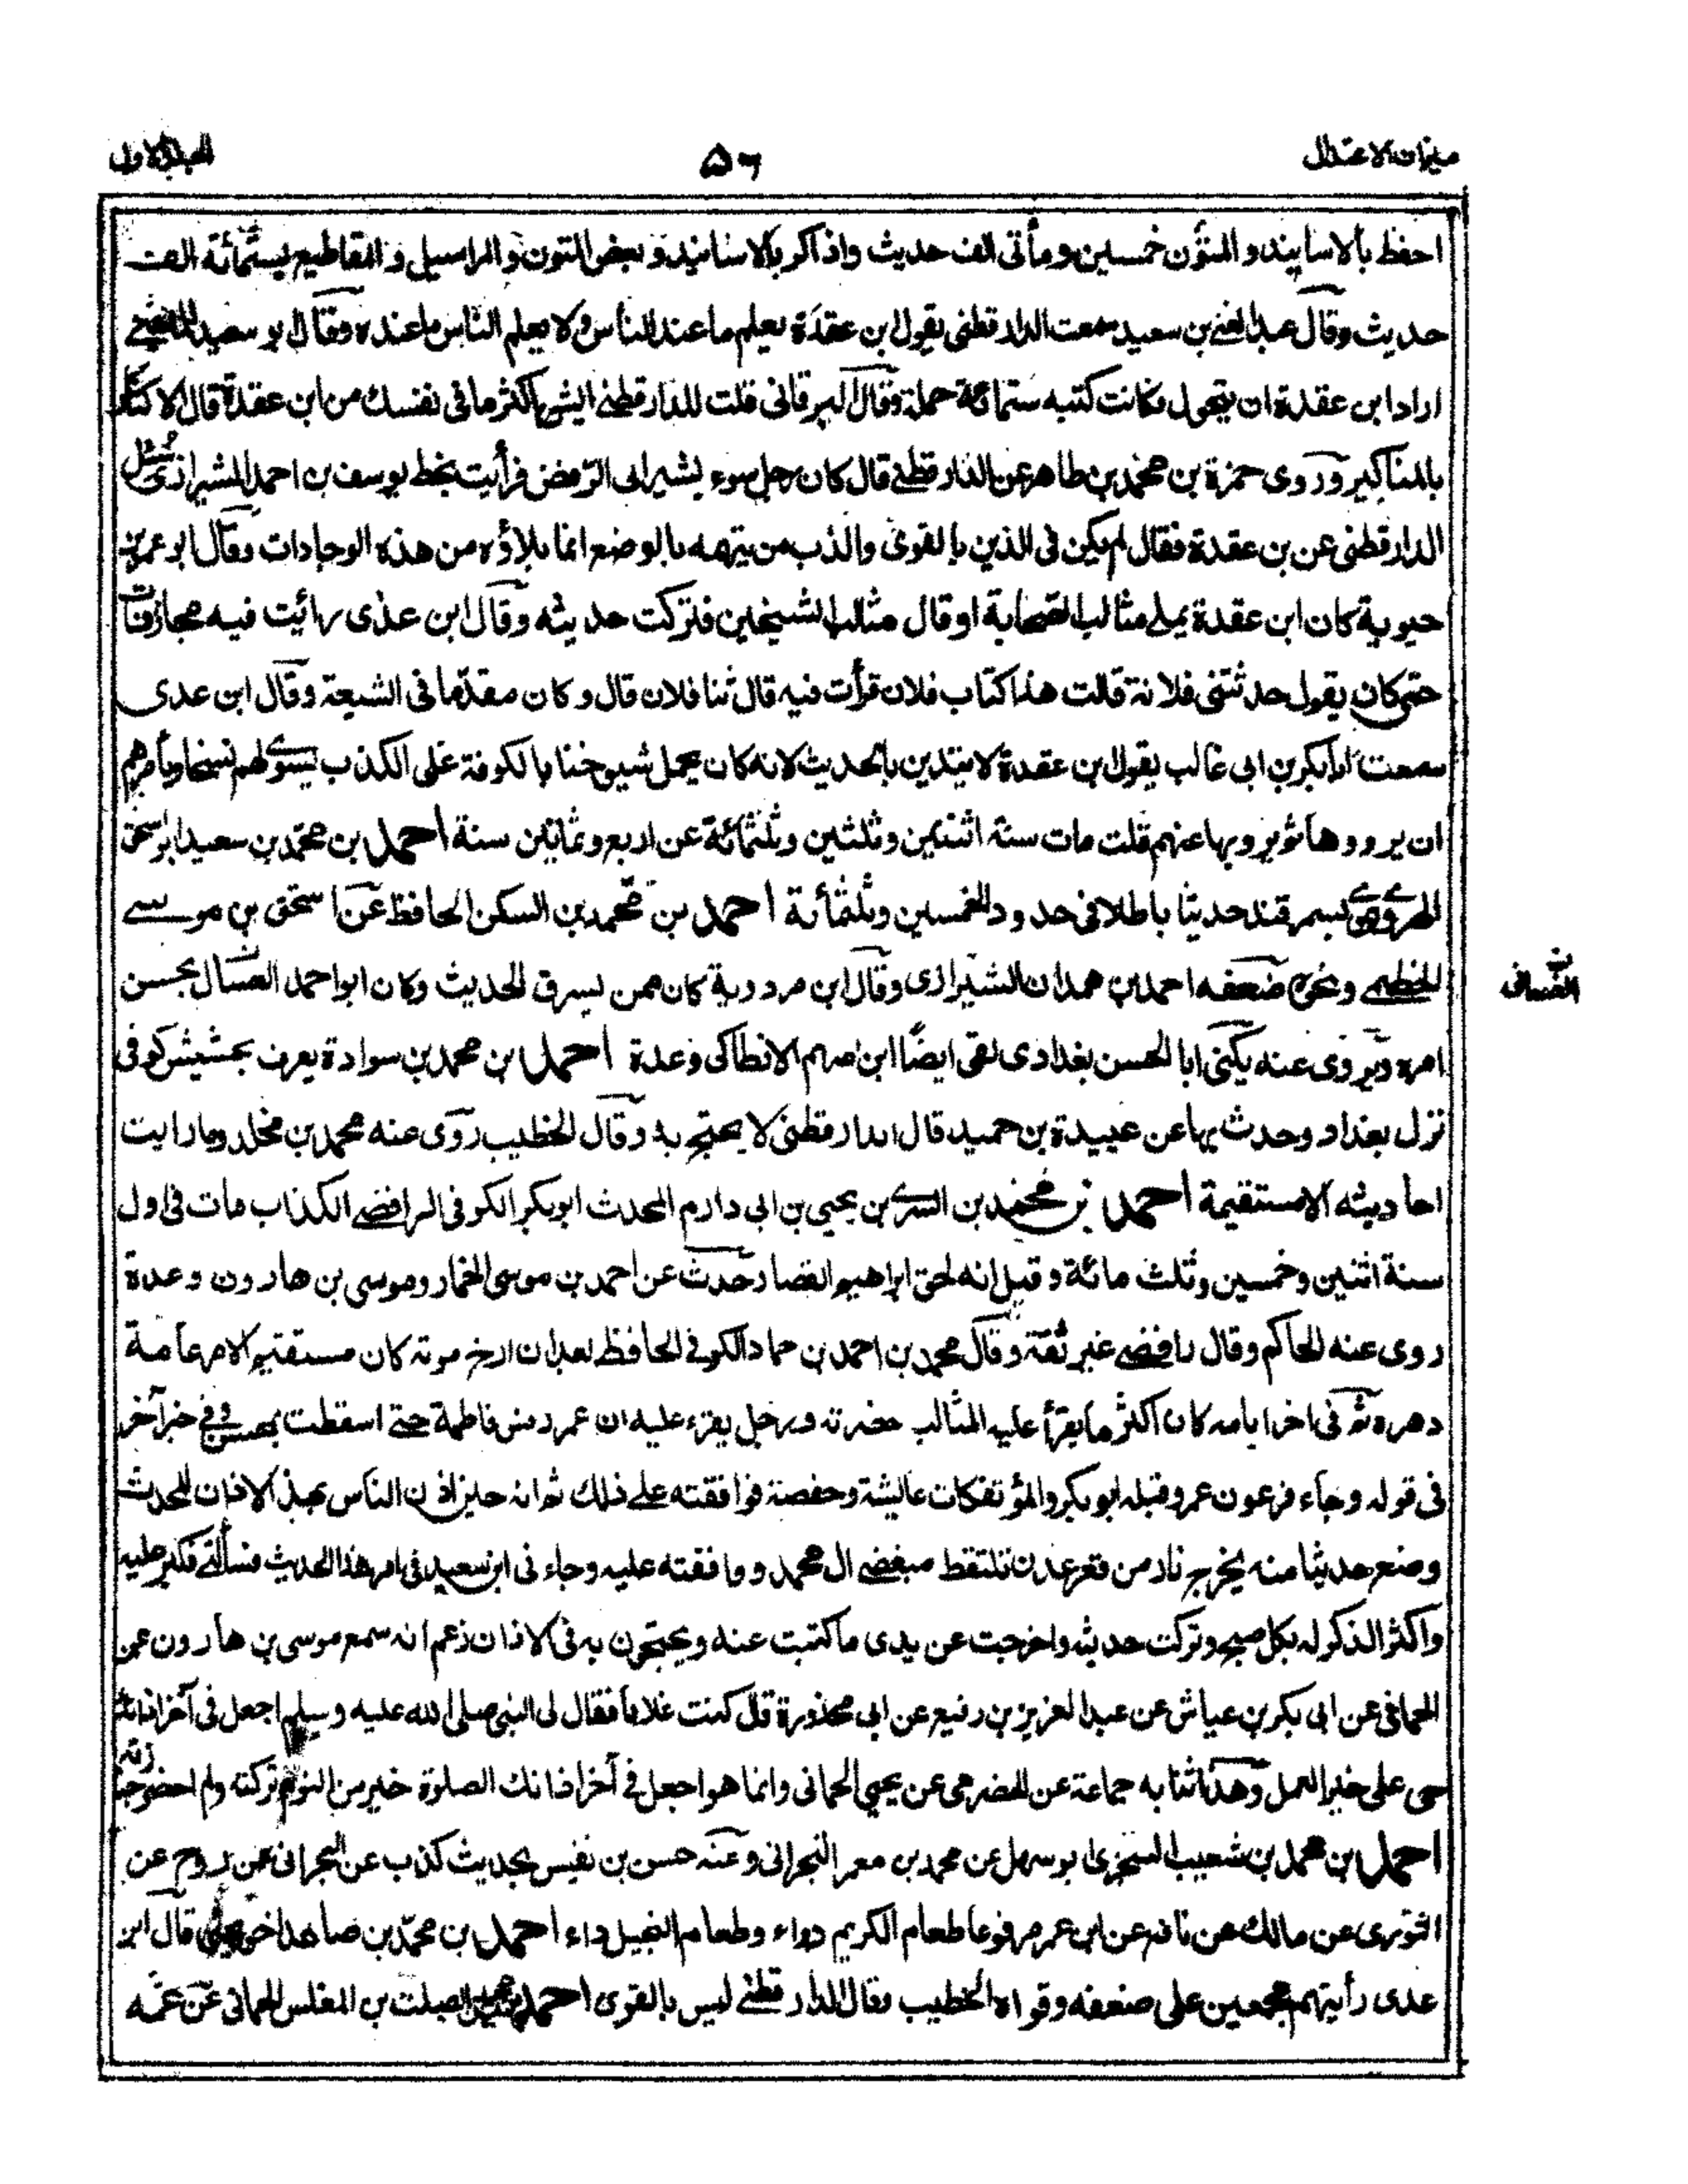 ميزان الاعتدال
٥٦
المجلد الاول
احفظ بالاسانيد و المتون خمسين و مأتى الف حديث واذاكر بالاسانيد و بعض المتون و المراسيل و المقاطيع بستمائة الف
حديث وقال عبد الغنى بن سعيد سمعت الدارقطنى يقول ابن عقدة يعلم ما عند الناس ولا يعلم الناس ما عنده وقال ابو سعيد المالينى
اراد ابن عقدة ان يتحول فكانت كتبه ستمائة حملة وقال البرقانى قلت للدارقطنى ايش اكثر ما فى نفسك من ابن عقدة قال الاكثار
بالمناكير وروى حمزة بن محمد بن طاهر عن الدارقطنى قال كان رجل سوء يشير الى الرفض فرأيت بخط يوسف بن احمد الشيرازى سئل
الدارقطنى عن بن عقدة فقال لم يكن فى الدين بالقوى والذب من يتهمه بالوضع انما بلاؤه من هذه الوجادات وقال ابو عمر بن
حيوية كان ابن عقدة يملى مثالب الصحابة او قال مثالب الشيخين فتركت حديثه وقال ابن عدى رائيت فيه مجازفات
حتى كان يقول حدثتنى فلانة قالت هذا كتاب فلان قرأت فيه قال ثنا فلان قال و كان مقدما فى الشيعة وقال ابن عدى
سمعت ابا بكر بن ابى غالب يقول ابن عقدة لا يتدين بالحديث لانه كان يحمل شيوخنا بالكوفة على الكذب يسوى لهم نسخا ويأمرهم
ان يرووها ثم يرويها عنهم قلت مات سنة اثنتين وثلثين وثلثمائة عن اربع و ثمانين سنة احمد بن محمد بن سعيد ابو اسحق
الهروى بسمرقند حديثا باطلا فى حدود الخمسين وثلثمائة احمد بن محمد بن السكن الحافظ عن اسحق بن موسى
الخطمى ونحوه ضعفه احمد بن همدان الشيرازى وقال ابن مردوية كان ممن يسرق الحديث وكان ابو احمد العسال يحسن
امره ويروى عنه يكنى ابا الحسن بغدادى لقى ايضا ابن سهم الانطاكى وعدة احمد بن محمد بن سوادة يعرف بحشيش كوفى
نزل بغداد وحدث بها عن عبيدة بن حميد قال الدارقطنى لا يحتج به وقال الخطيب روى عنه محمد بن مخلد وما رايت
احاديثه الا مستقيمة احمد بن محمد بن السرى بن يحيى بن ابى دارم المحدث ابو بكر الكوفى الرافضى الكذاب مات فى اول
سنة اثنين وخمسين وثلث مائة و قيل انه لحق ابراهيم القصار حدث عن احمد بن موسى الخمار وموسى بن هارون وعدة
روى عنه الحاكم وقال رافضى غير ثقة وقال محمد بن احمد بن حماد الكوفى الحافظ بعد ان ارخ موته كان مستقيم الامر عامة
دهره ثم فى اخر ايامه كان اكثر ما يقرأ عليه المثالب حضرته ورجل يقرء عليه ان عمر رفس فاطمة حتى اسقطت بمحسن وفى خبر آخر
فى قوله وجاء فرعون عمر وقبله ابو بكر والمؤتفكات عايشة وحفصة فوافقته على ذلك ثم انه حين اذن الناس بهذ الاذان المحدث
وضع حديثا منه يخرج نار من قعر عدن تلتقط مبغضى ال محمد ووافقته عليه وجاء نى ابن سعيد فى امر هذا الحديث فسألنى فكبر عليه
واكثر الذكر له بكل قبيح وتركت حديثه واخرجت عن يدى ما كتبت عنه ويحتجون به فى الاذان زعم انه سمع موسى بن هارون عن
الحمانى عن ابى بكر بن عياش عن عبد العزيز بن رفيع عن ابى محذورة قال كنت غلاما فقال لى النبى صلى الله عليه وسلم اجعل فى آخر اذانك
حى على خير العمل وهذا ثنا به جماعة عن الحضرمى عن يحيى الحمانى وانما هو اجعل فى آخر اذانك الصلوة خير من النوم تركته ولم احضر جنازته
احمد بن محمد بن شعيب السجزى ابو سهل عن محمد بن معمر البحرانى وعنه حسن بن نفيس بحديث كذب عن البحرانى عن روح عن
الثورى عن مالك عن نافع عن ابن عمر مرفوعا طعام الكريم دواء وطعام البخيل داء احمد بن محمد بن صاعد اخو يحيى قال ابن
عدى رأيتهم مجمعين على ضعفه وقواه الخطيب وقال الدارقطنى ليس بالقوى احمد بن محمد بن الصلت بن المغلس الحمانى عن عمه
الغسانى